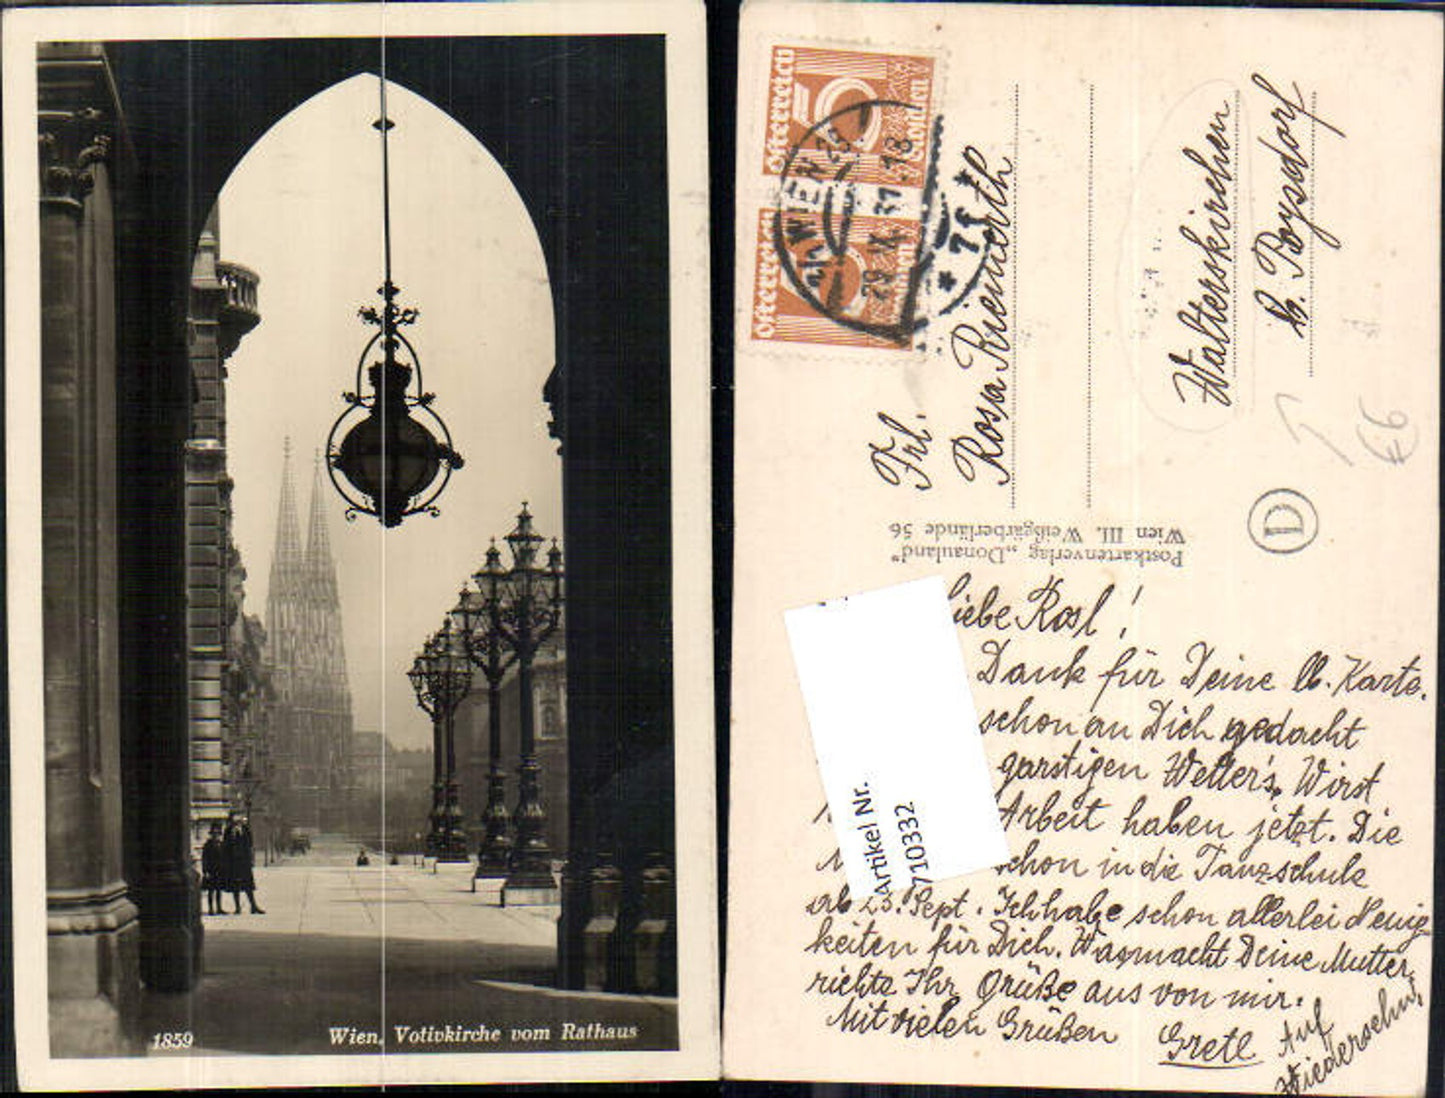 1859
Wien, Votivkirche vom Rathaus
Österreich
5
Groschen
Österreich
WIEN 25
29. IX. 31 18
* 7f *
Frl.
Rosa Riemerth
Walterskirchen
b. Poysdorf
D
Postkartenverlag „Donauland"
Wien III. Weißgärberlände 56
Artikel Nr.
710332
Liebe Rosl!
Dank für Deine lb. Karte.
schon an Dich gedacht
garstigen Wetter's. Wirst
Arbeit haben jetzt. Die
schon in die Tanzschule
ab 25. Sept. Ich habe schon allerlei Neuig
keiten für Dich. Was macht Deine Mutter,
richte Ihr Grüße aus von mir.
Mit vielen Grüßen Grete
Auf
Wiedersehn!